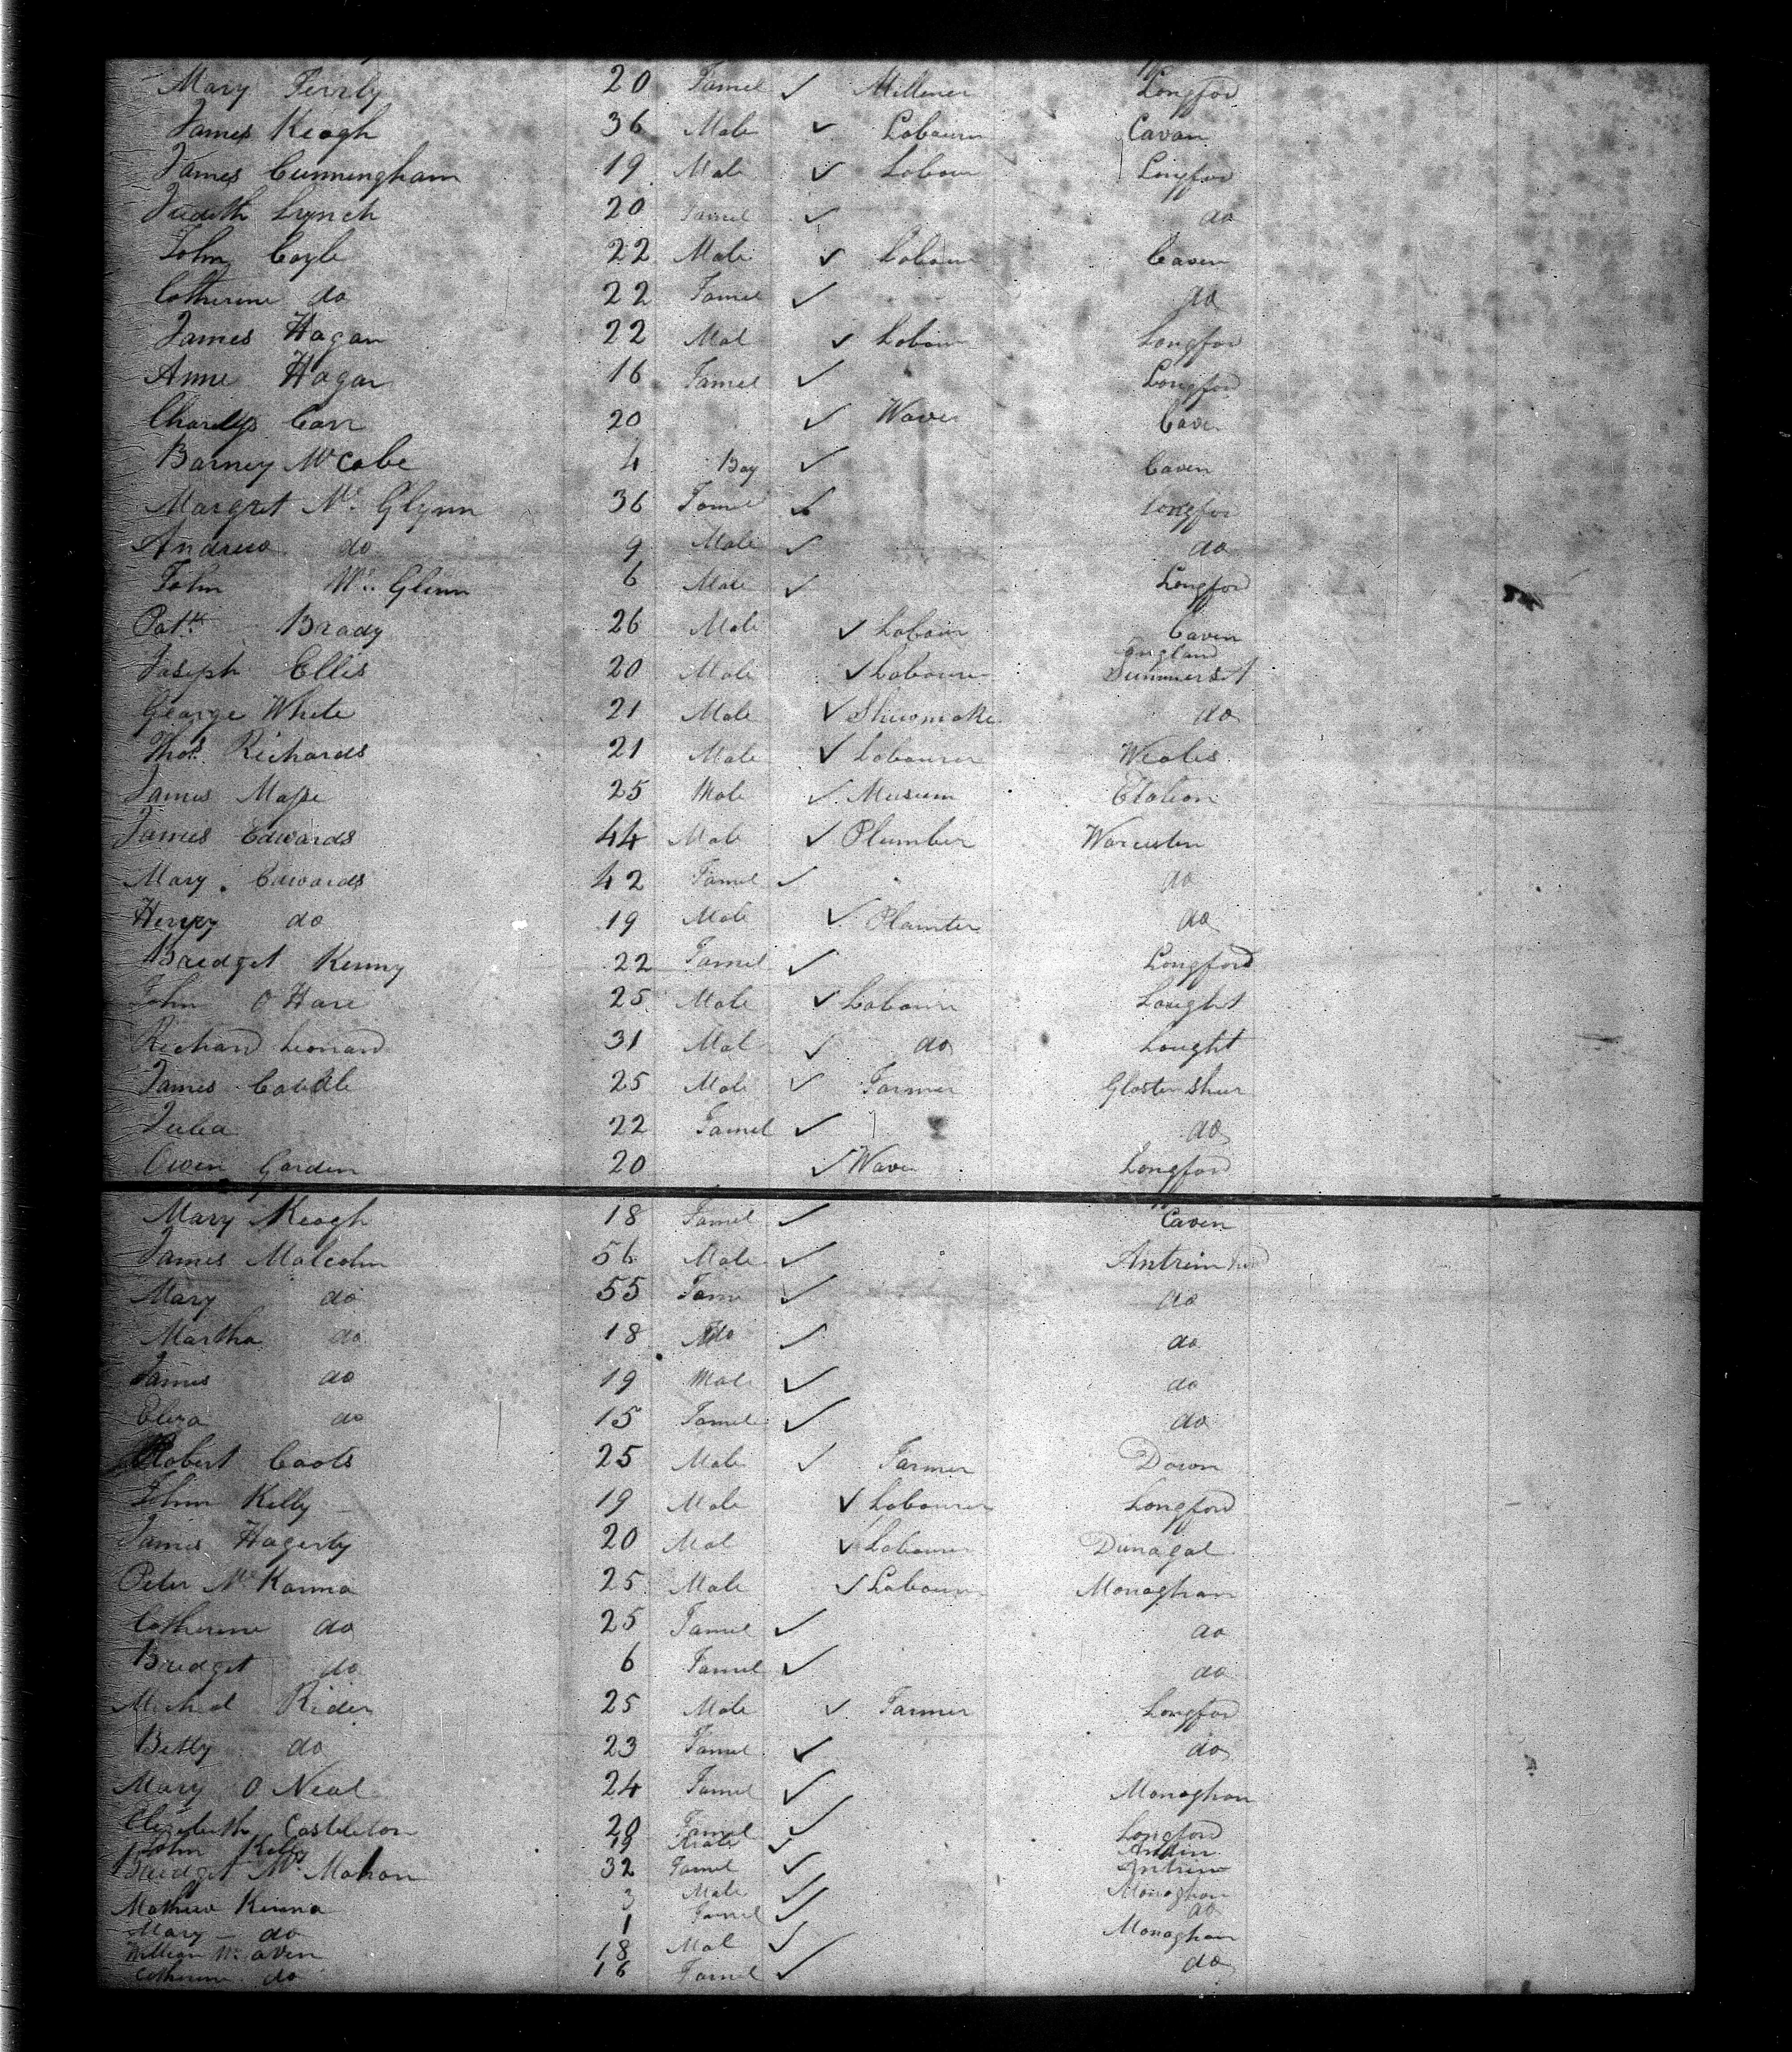 Mary 20 Famel Millener Longford
James Keogh 36 Male Labourer Cavan
James Cunningham 19 Male Labour Longford
Judith Lynch 20 Famel do
John Coyle 22 Male Labour Caven
Catherine do 22 Famel do
James Hagan 22 Mal Labour Longford
Anne Hagan 16 Famel Longford
Charles Carr 20 Waver Caven
Barney McCabe 4 Boy Caven
Margret Mc Glynn 36 Famel Longford
Andrew do 9 Male do
John Mc Glinn 6 Male Longford
Patk Brady 26 Male Labour Caven
Joseph Ellis 20 Male Labourer England Summerset
George White 21 Male Shewmaker do
Thos Richards 21 Male Labourer Weales
James 25 Male
James Edwards 44 Male Plumber Worcester
Mary Edwards 42 Famel do
Henry do 19 Male do
Bridget Kenny 22 Famel Longford
John O Hare 25 Male Labourer Lought
Richard Leonard 31 Mal do Lought
James 25 Male Farmer Glostershur
Julia 22 Famel do
Owen Garden 20 Waver Longford
Mary Keogh 18 Famel Caven
James Malcolm 56 Male Antrim
Mary do 55 Fame do
Martha do 18 do do
James do 19 Male do
Eliza do 15 Famel do
Robert Coots 25 Male Farmer Down
John Kelly 19 Male Labourer Longford
James Hagerty 20 Mal Labourer Dunagal
Peter Mc Kanna 25 Male Labourer Monaghan
Catherine do 25 Famel do
Bridget do 6 Famel do
Micheal Rider 25 Male Farmer Longford
Betty do 23 Famel do
Mary O Neal 24 Famel Monaghan
Elizabeth Castleton 20 Famel Longford
John Kelly 19 Male
Bridget Mc Mahon 32 Famel Antrim
Mathew Kinna 3 Male Monaghan
Mary do 1 Famel do
William 18 Mal Monaghan
Catherine do 16 Famel do